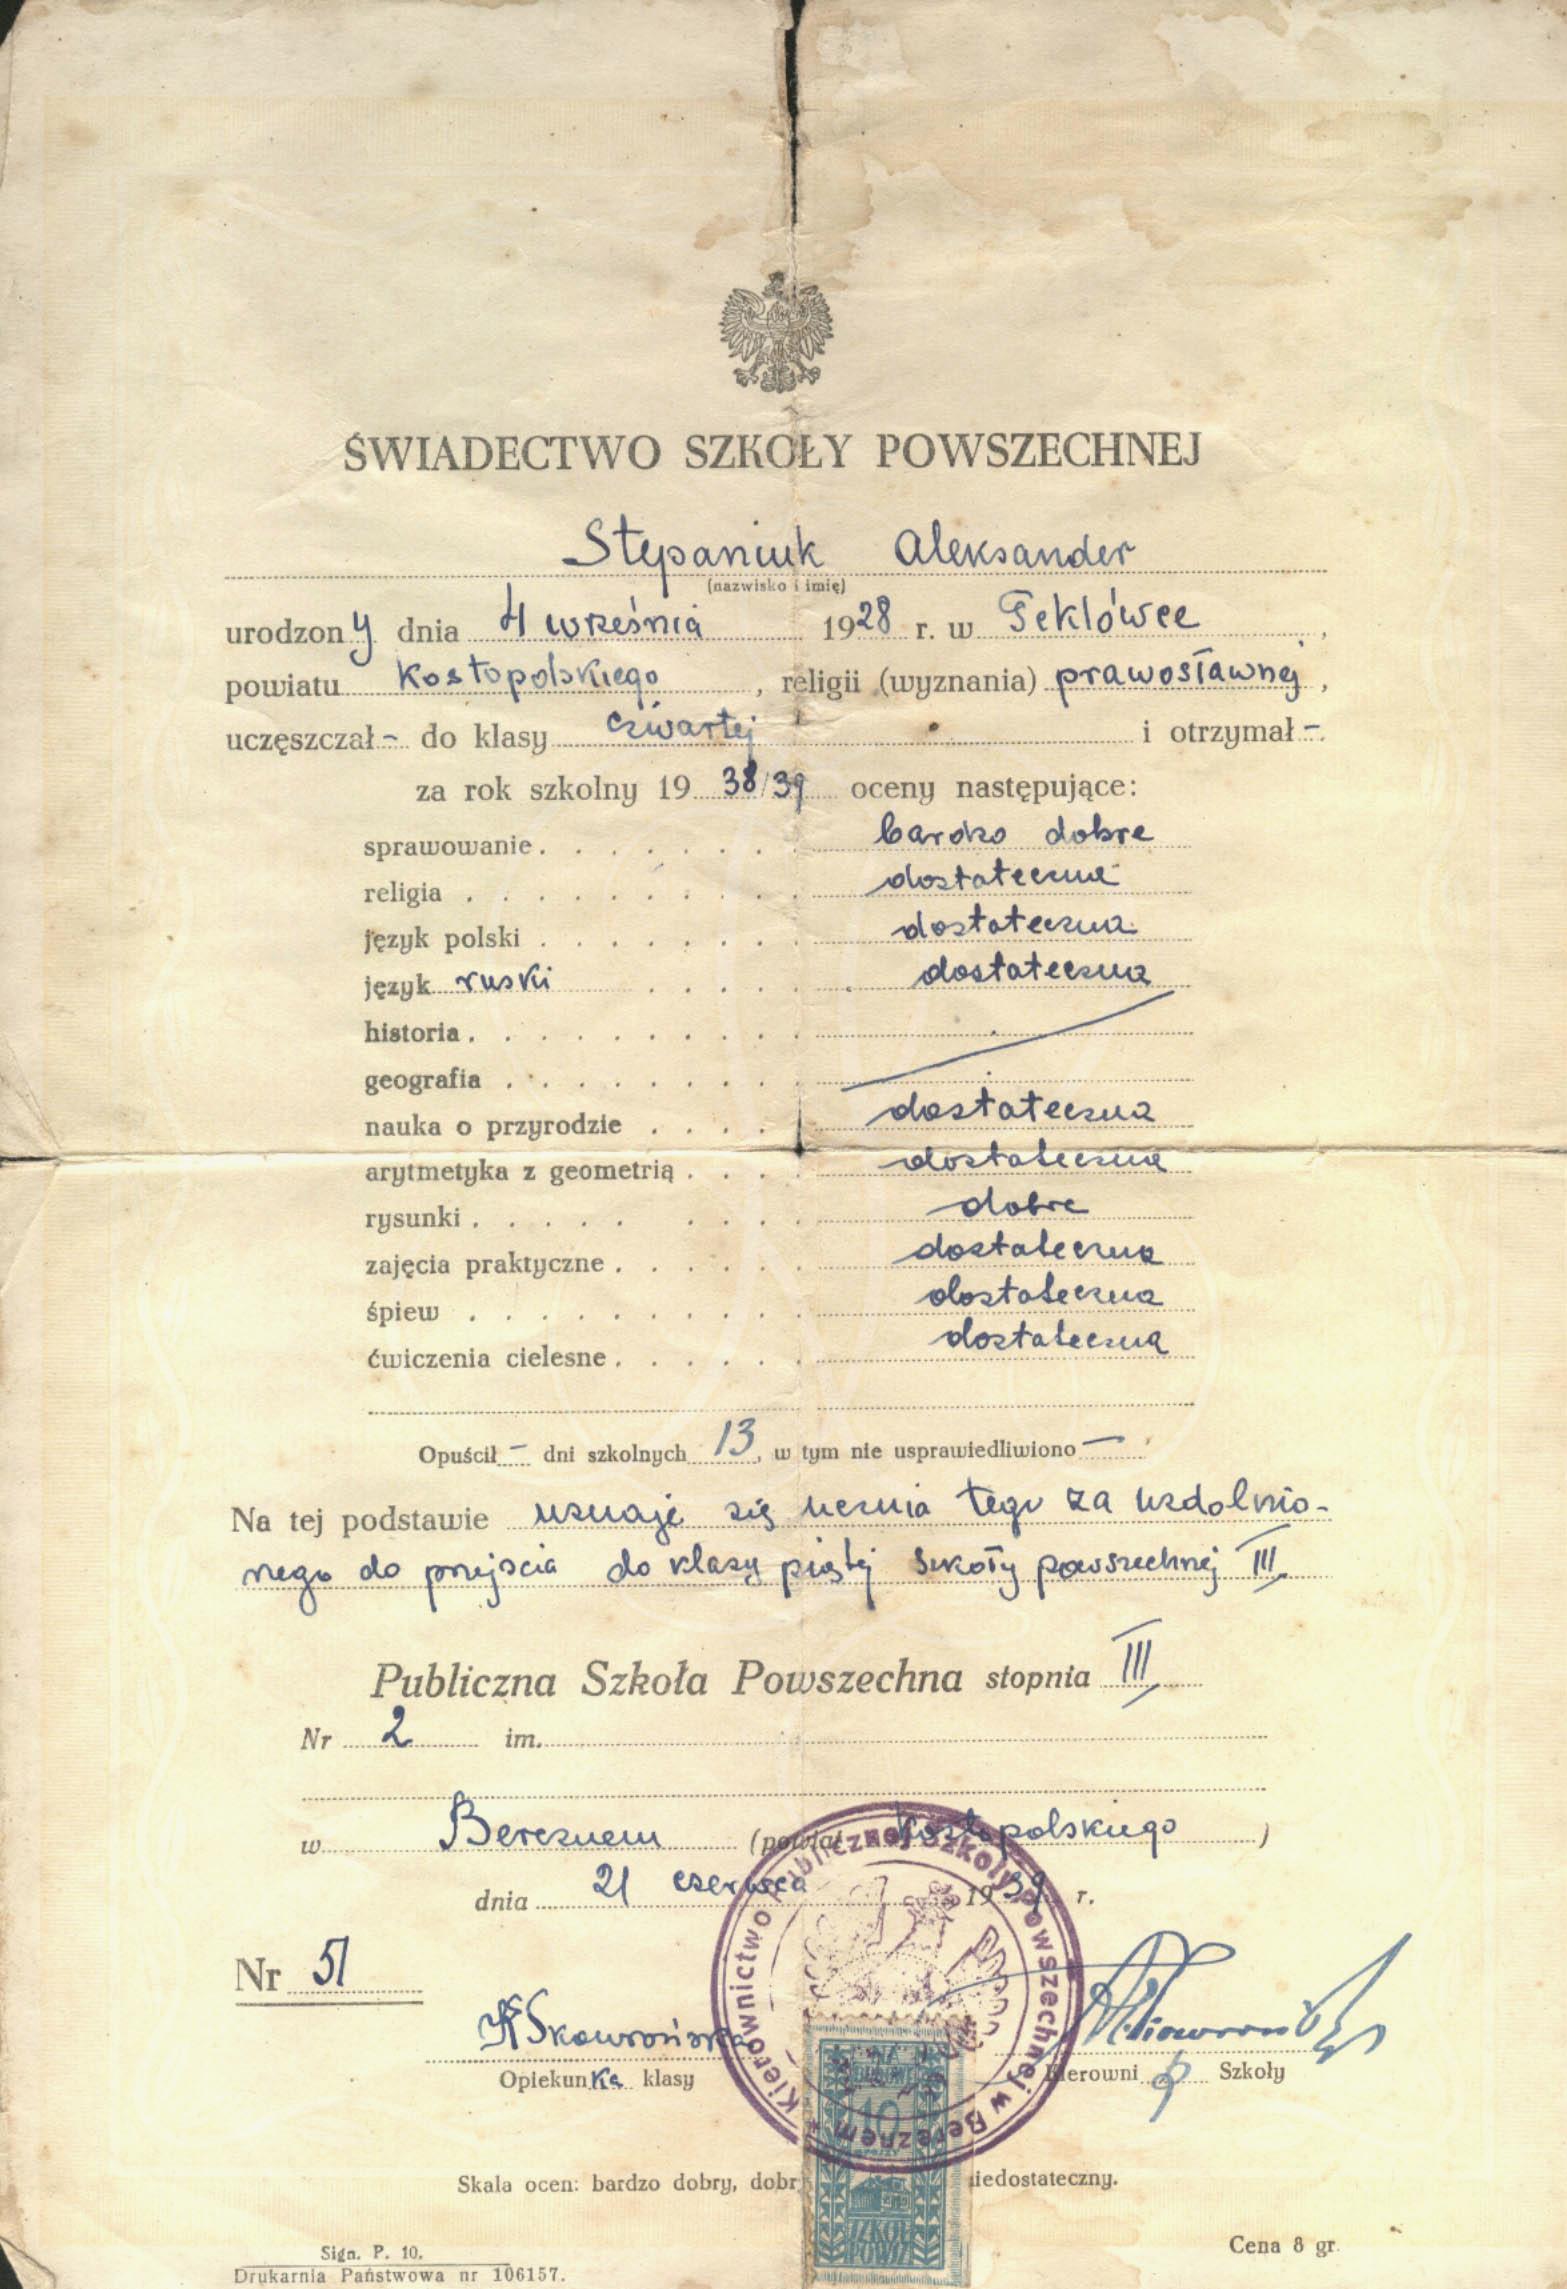 ŚWIADECTWO SZKOŁY POWSZECHNEJ
Stepaniuk Aleksander
(nazwisko i imię)
urodzony dnia 4 września 1928 r. w Teklówce,
powiatu Kostopolskiego, religii (wyznania) prawosławnej,
uczęszczał - do klasy czwartej i otrzymał -
za rok szkolny 1938/39 oceny następujące:
sprawowanie bardzo dobre
religia dostateczne
język polski dostateczna
język ruski dostateczna
historia
geografia
nauka o przyrodzie dostateczna
arytmetyka z geometrią dostateczna
rysunki dobre
zajęcia praktyczne dostateczna
śpiew dostateczna
ćwiczenia cielesne dostateczna
Opuścił - dni szkolnych 13, w tym nie usprawiedliwiono —
Na tej podstawie uznaje się ucznia tego za uzdolnio-
nego do przejścia do klasy piątej szkoły powszechnej III
Publiczna Szkoła Powszechna stopnia III
Nr 2 im.
w Bereznem (powiat Kostopolskiego)
dnia 21 czerwca 1939 r.
Kierownictwo Publicznej Szkoły Powszechnej w Bereznem *
Nr 51
Skowrońska
Opiekunka klasy
Kierowni Szkoły
NA
BUDOWĘ
10
GROSZY
SZKÓŁ
POWSZ
Skala ocen: bardzo dobry, dobr niedostateczny.
Sign. P. 10.
Drukarnia Państwowa nr 106157.
Cena 8 gr